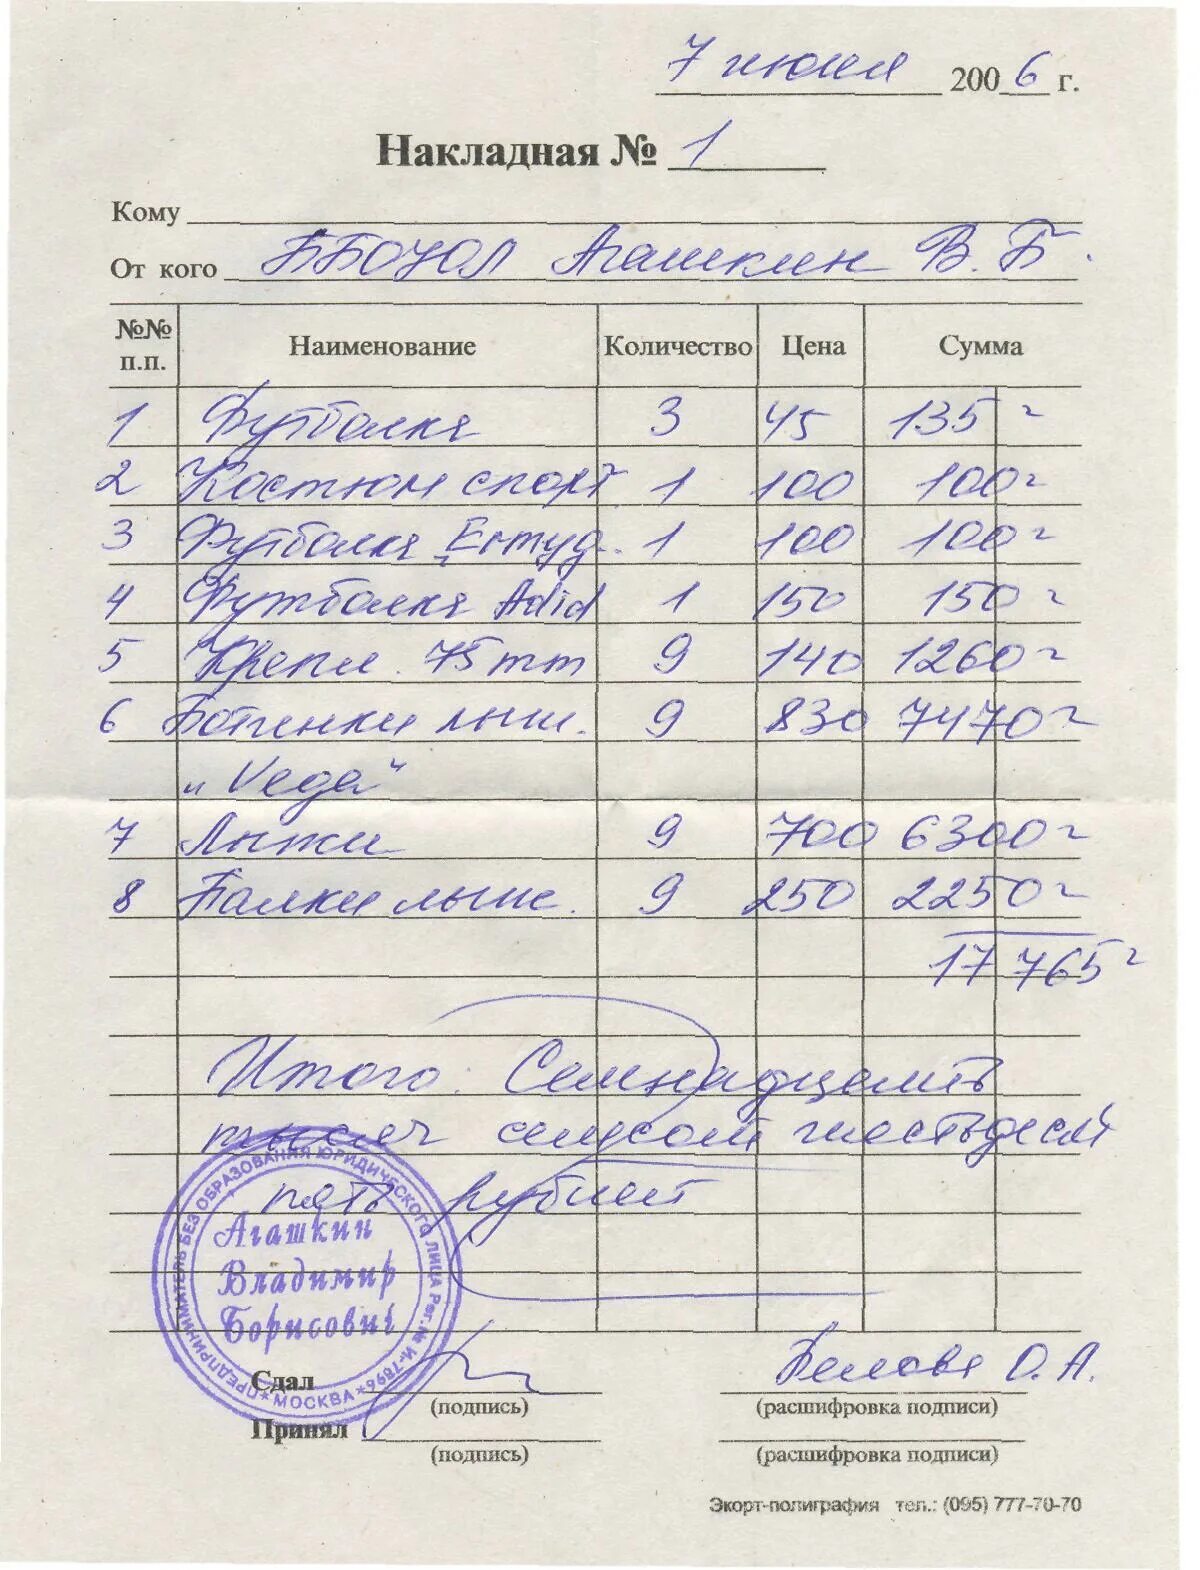 7 июня 2006 г.
Накладная № 1
Кому
От кого ББОЮЛ Агашкин В.Б.
№№ п.п. Наименование Количество Цена Сумма
1 Футболка 3 45 135
2 Костюм спорт. 1 100 100
3 Футболка 1 100 100
4 Футболка Adid 1 150 150
5 Крепл. 75mm 9 140 1260
6 Ботинки лыж. 9 830 7470
„Vega"
7 Лыжи 9 700 6300
8 Палки лыж. 9 250 2250
17 765
Итого: Семнадцать
тысяч семьсот шестьдесят
пять рублей
ПРЕДПРИНИМАТЕЛЬ БЕЗ ОБРАЗОВАНИЯ ЮРИДИЧЕСКОГО ЛИЦА Рег. № И-7896 * МОСКВА *
Агашкин
Владимир
Борисович
Сдал Белова О.А.
(подпись) (расшифровка подписи)
Принял
(подпись) (расшифровка подписи)
Экорт-полиграфия тел.: (095) 777-70-70